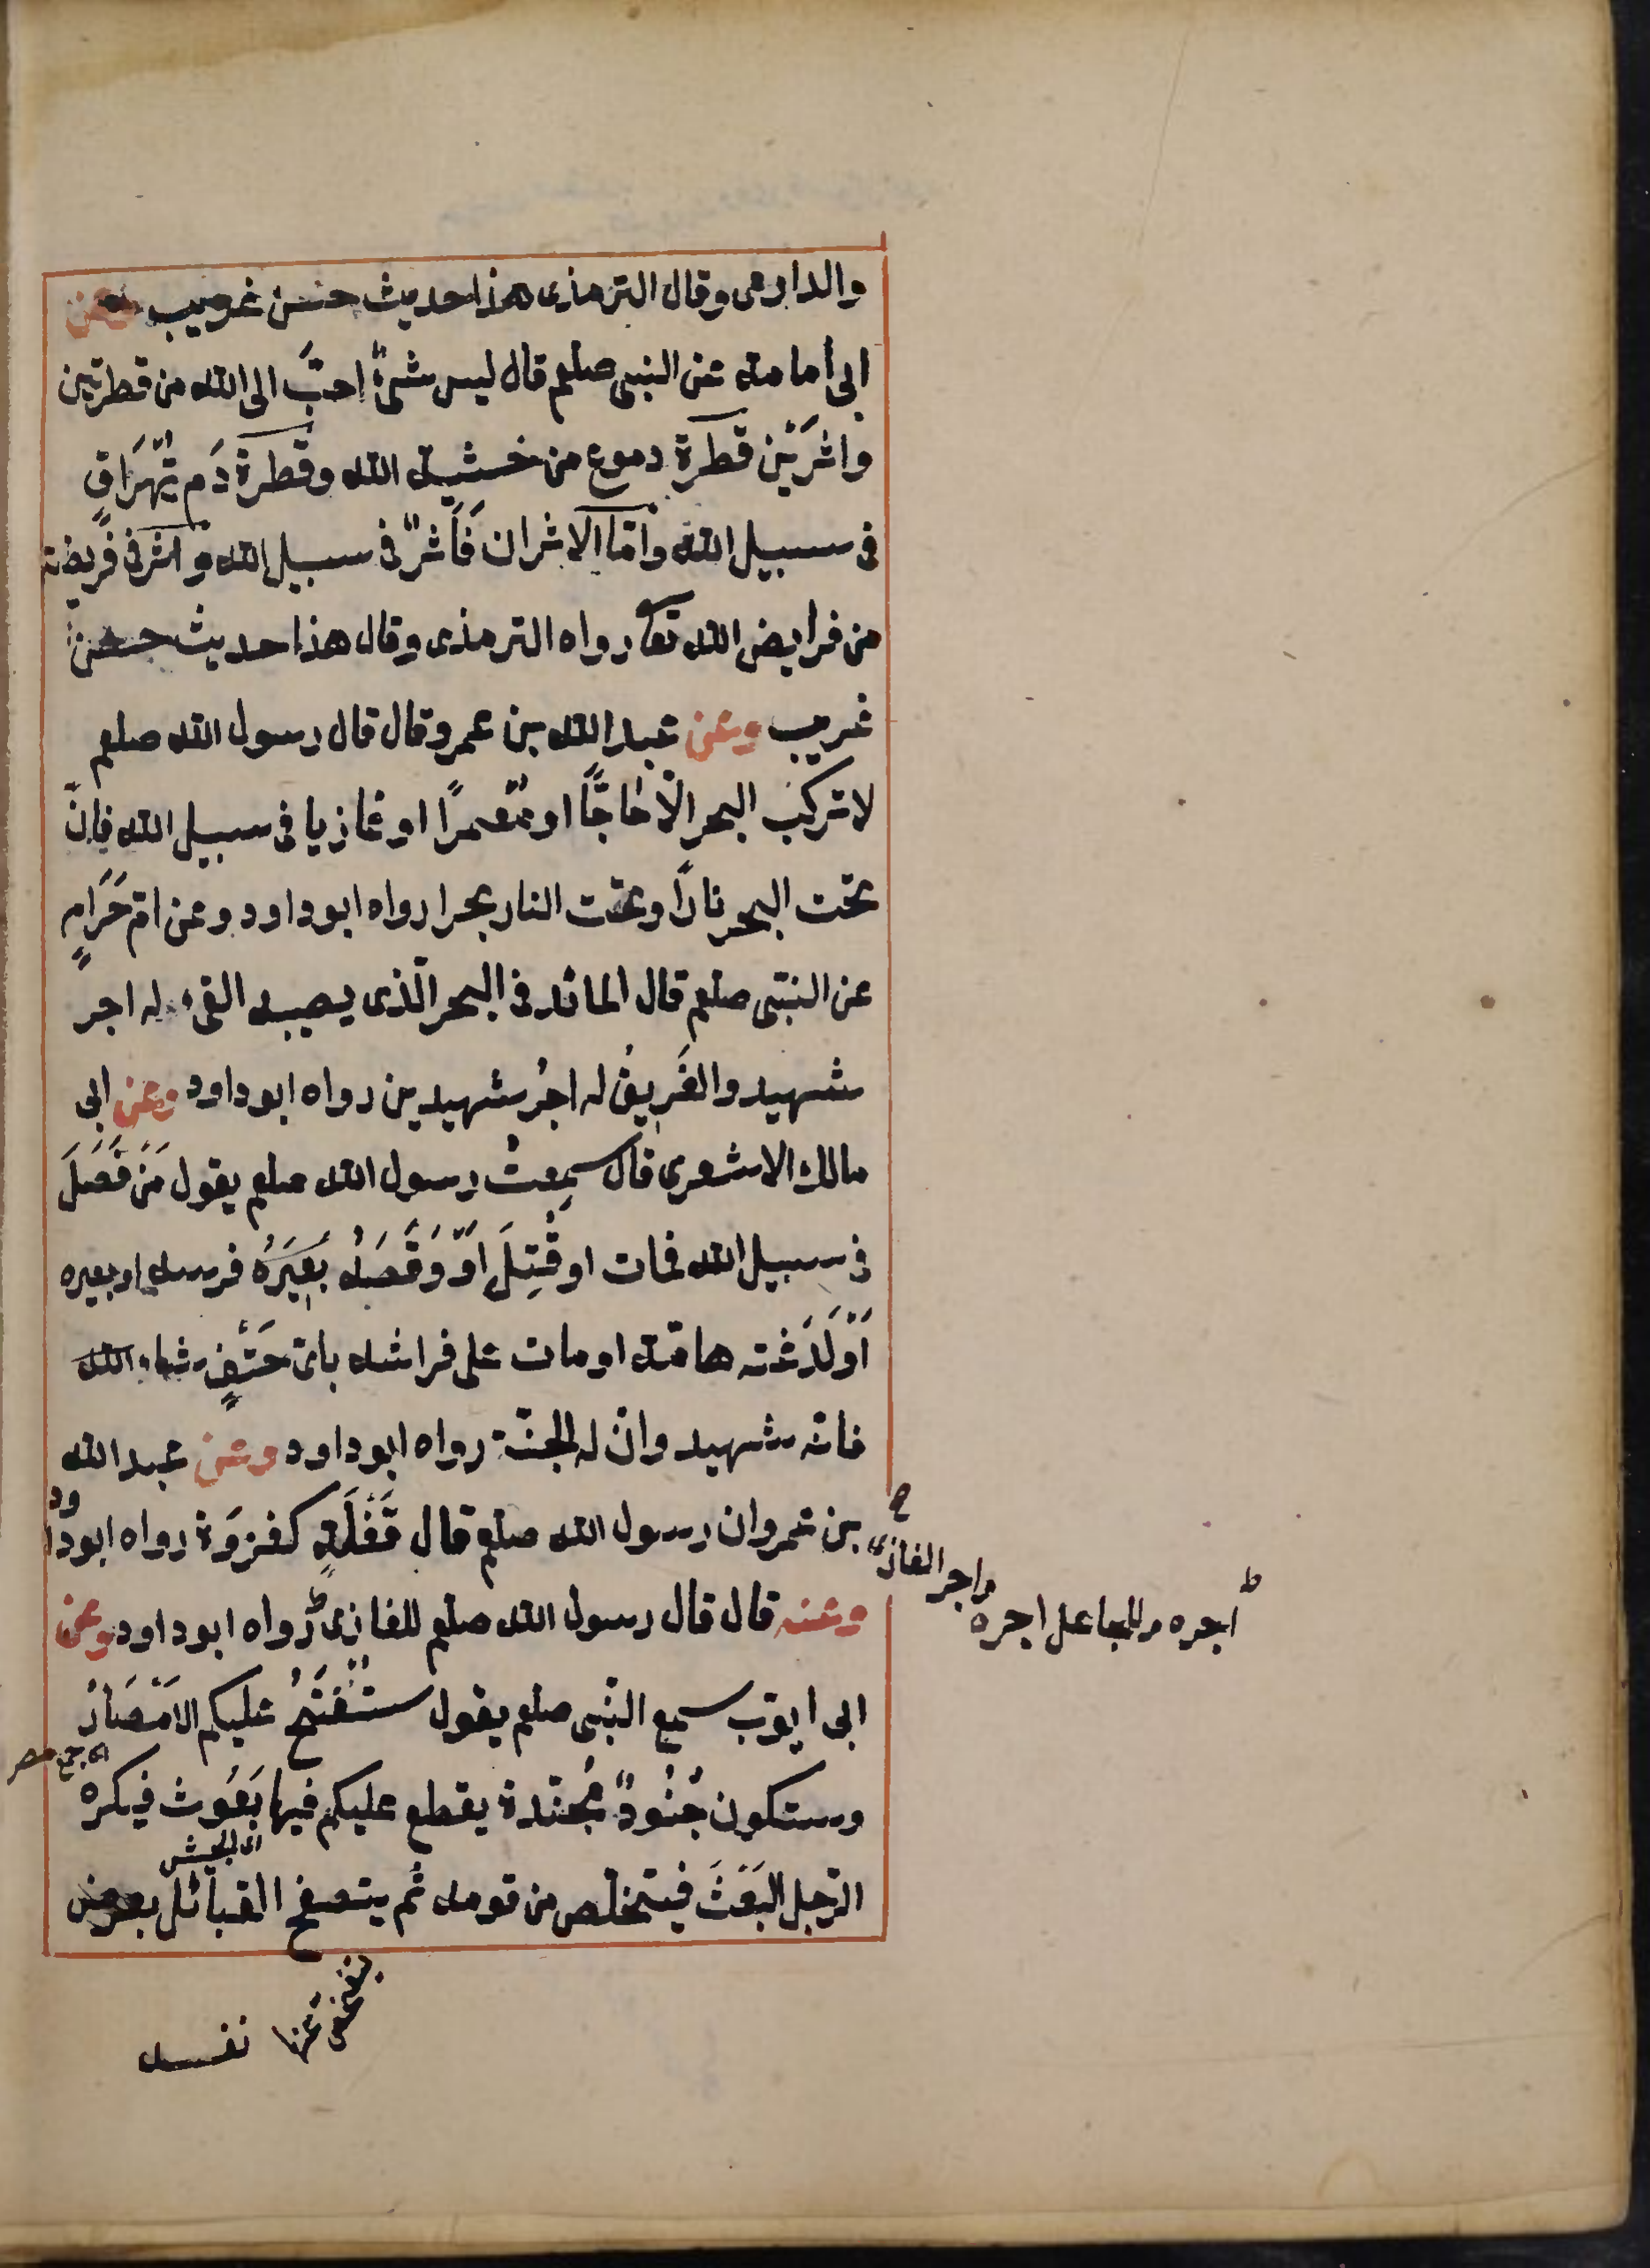 والدارمى وقال الترمذى هذا حديث حسن غريب وعن
ابى أمامة عن النبى صلعم قال ليس شئٌ احبَّ الى الله من قطرتين
واثَرَيْن قطرة دموع من خشية الله وقطرة دَم تُهَرَاق
فى سبيل الله وامّا الاثران فَاَثرٌ فى سبيل الله واثر فى فريضة
من فرايض الله تعا رواه الترمذى وقال هذا حديث حسن
غريب وعن عبد الله بن عمرو قال قال رسول الله صلعم
لا تركب البحر الّا حاجًّا او مُعتمرًا او غازيا فى سبيل الله فانّ
تحت البحر نارًا وتحت النار بحرا رواه ابو داود وعن امّ حَرَامٍ
عن النبىّ صلعم قال المائد فى البحر الّذى يصيبه القىء له اجر
شهيد والغَرِيقُ له اجرُ شهيدين رواه ابو داود وعن ابى
مالك الاشعرى قال سمِعتُ رسول الله صلعم يقول مَنْ فَصَلَ
فى سبيل الله فمات او قُتِلَ اَوْ وَقَصَهُ بَعِيَرَهُ فرسه او بعيره
اَوْ لَدَغَته هامّة او مات على فراشه باىّ حَتْفٍ شاء الله
فانّه شهيد وانّ له الجنّة رواه ابو داود وعن عبد الله
بن عمرو ان رسول الله صلعم قال قَفْلَةٍ كغزوَة رواه ابو داود
وعنه قال قال رسول الله صلعم للغازى رواه ابو داود وعن
اجره وللجاعل اجره
واجر الغازى
ابى ايّوب سمع النّبى صلعم يقول ستُفْتَحُ عليكم الامْصَارُ
اى جمع مصر
وستكون جُنُودٌ مُجنّدة يقطع عليكم فيها بَعُوث فيكره
اى الجيش
الرّجل البَعْثَ فيتخلّص من قومه ثم يتصفح القبائل يعرض
نفسه